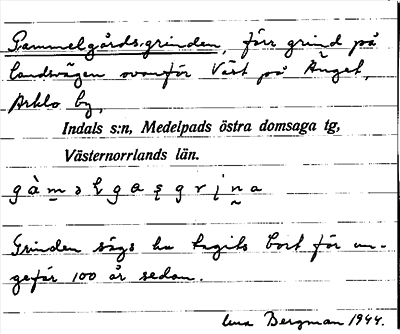 Gammelgårdsgrinden, förr grind på
landsvägen ovanför Väst på Änget,
Arklo by,
Indals s:n, Medelpads östra domsaga tg,
Västernorrlands län.
gàməlgaşgrịna
Grinden sägs ha tagits bort för un-
gefär 100 år sedan.
Bergman 1944.